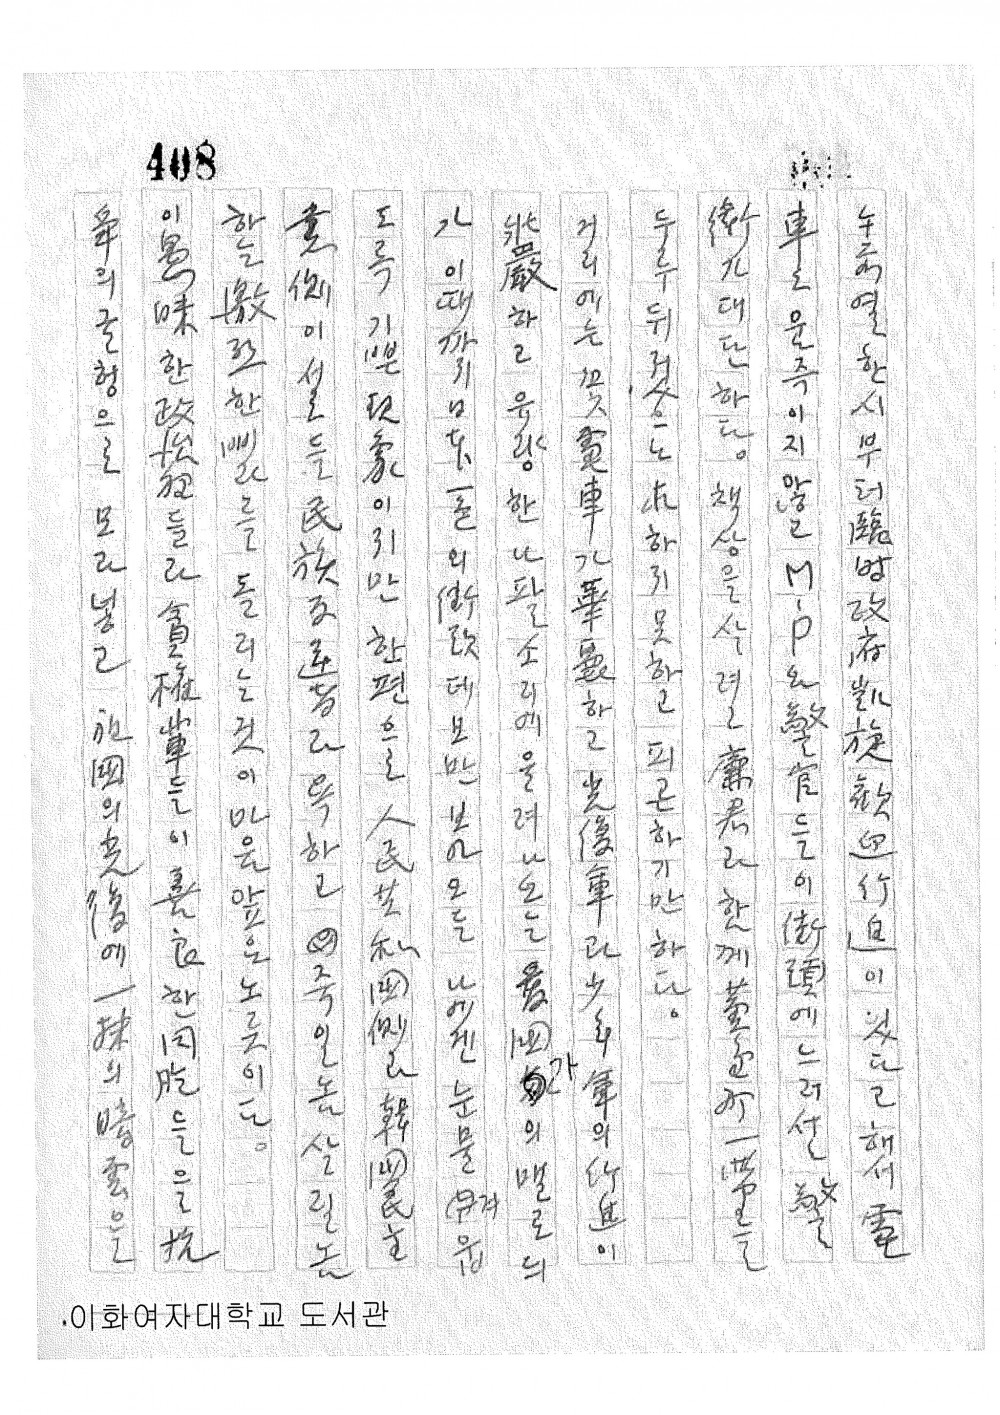 408
누 열한시부터 臨時政府凱旋歡迎行進이 있다고 해서 電
車도 움즉이지 않고 M.P와 警官들이 街頭에 느러선 警
衛가 대단하다. 책상을 사려고 廉君과 함께 一帶를
두루 뒤졌으나 求하지 못하고 피곤하기만 하다.
거리에는 꽃電車가 華麗하고 光復軍과 少年軍의 行進이
壯嚴하고 유량한 나팔소리에 울려나오는 愛國가의 멜로듸
가 이때까지 日本一色의 街頭데모만 보아오든 나에겐 눈물겨웁
도록 기쁜 現象이지만 한편으로 人民共和國側과 韓國民主
黨側이 서로들 民族反逆者라 욕하고 죽일놈 살릴놈
하는 激烈한 삐라를 돌리는것이 마음앞은 노릇이다.
이 愚昧한 政治狂들과 貪權輩들이 善良한 同胞들을 抗
争의 굴헝으로 모라넣고 祖國의 光復에 一抹의 暗雲을
이화여자대학교 도서관